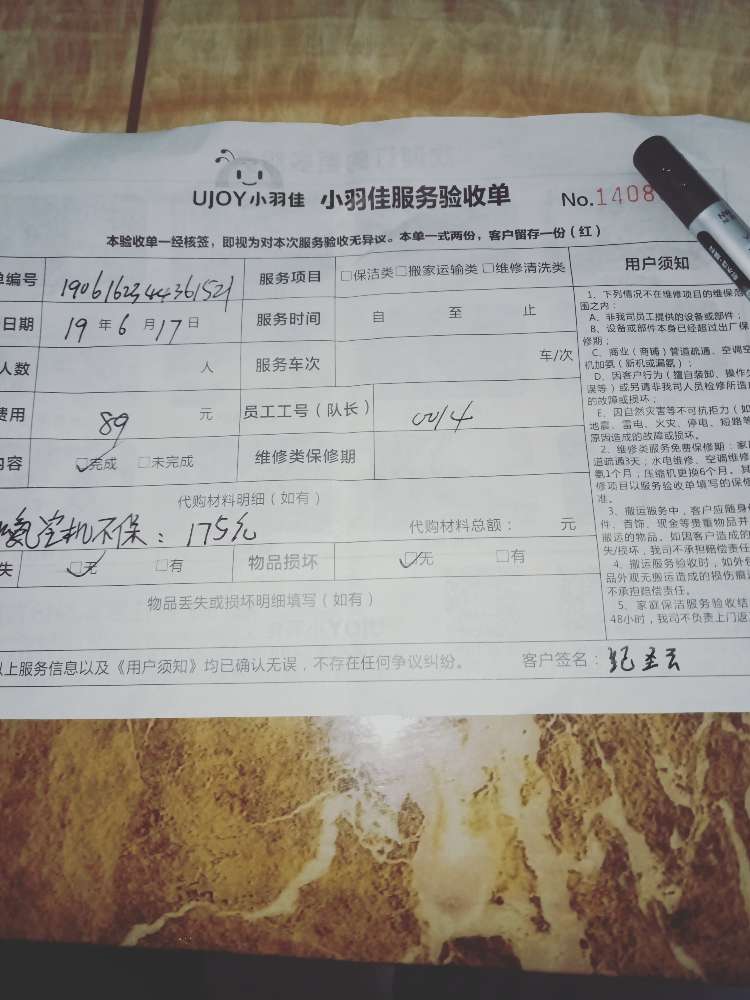 UJOY小羽佳 小羽佳服务验收单 No.1408
本验收单一经核签，即视为对本次服务验收无异议。本单一式两份，客户留存一份（红）
单编号 1906162344361521 服务项目 □保洁类□搬家运输类□维修清洗类 用户须知
日期 19年6月17日 服务时间 自 至 止
人数 人 服务车次 车/次
费用 89 元 员工工号（队长） 0014
内容 □完成 □未完成 维修类保修期
代购材料明细（如有）
氨空机不保：175元 代购材料总额： 元
失 □无 □有 物品损坏 □无 □有
物品丢失或损坏明细填写（如有）
以上服务信息以及《用户须知》均已确认无误，不存在任何争议纠纷。 客户签名：纪圣云
1、下列情况不在维修项目的维保范
围之内：
A、非我司员工提供的设备或部件；
B、设备或部件本身已经超过出厂保
修期；
C、商业（商铺）管道疏通、空调空
机加氨（新机或漏氨）；
D、因客户行为（擅自装卸、操作失
误等）或另请非我司人员检修所造
的故障或损坏；
E、因自然灾害等不可抗拒力（如
地震、雷电、火灾、停电、短路等
原因造成的故障或损坏。
2、维修类服务免费保修期：家
道疏通3天；水电维修、空调维修
氨1个月，压缩机更换6个月。其
修项目以服务验收单填写的保修
准。
3、搬运服务中，客户应随身
件、首饰、现金等贵重物品并
搬运的物品。如因客户造成的
失/损坏，我司不承担赔偿责任
4、搬运服务验收时，如外包
品外观无搬运造成的损伤痕迹
不承担赔偿责任。
5、家庭保洁服务验收结
48小时，我司不负责上门返